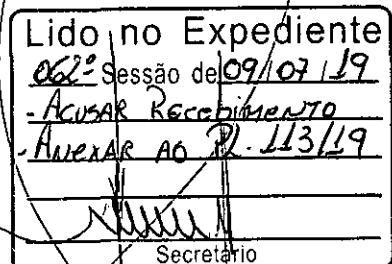 Lido no Expediente
062ª Sessão de 09/07/19
- ACUSAR RECEBIMENTO
- ANEXAR AO PL. 113/19
Secretário